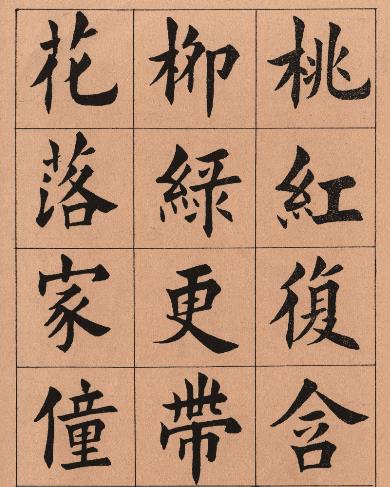 桃紅復含
柳綠更帶
花落家僮